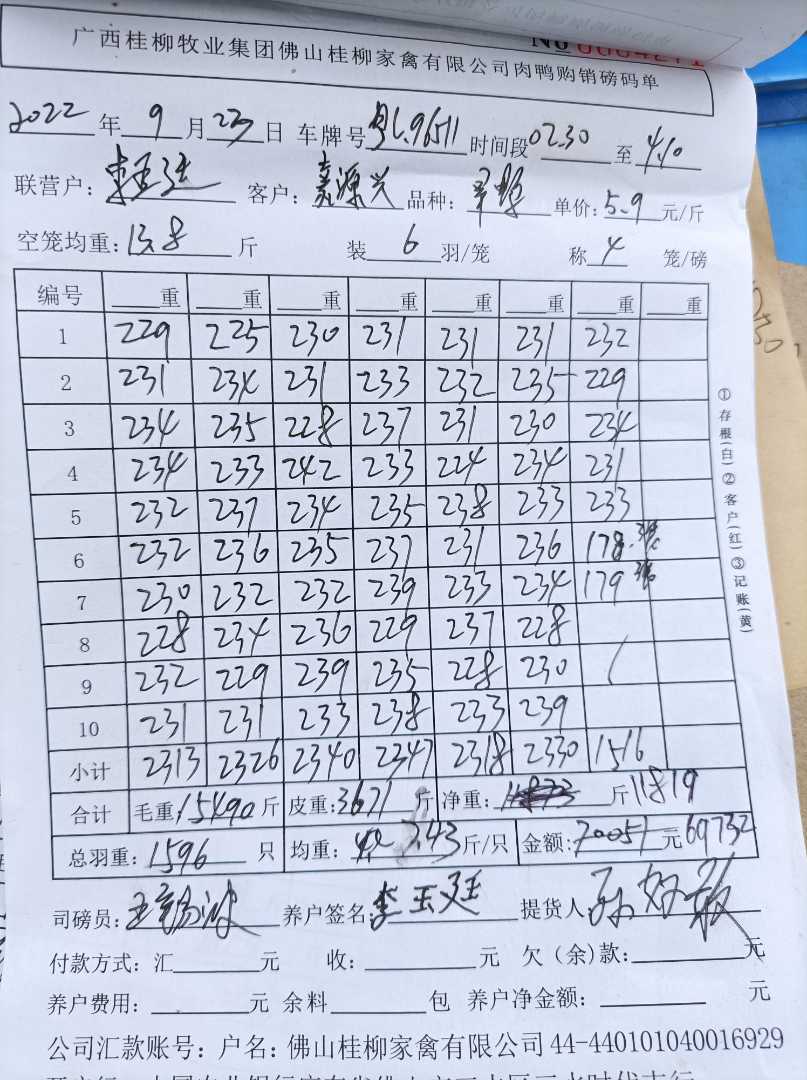 No 0004271
广西桂柳牧业集团佛山桂柳家禽有限公司肉鸭购销磅码单
2022年9月23日 车牌号 96511 时间段02.30至4.10
联营户: 客户:嘉源兴 品种: 单价:5.9元/斤
空笼均重:13.8斤 装6羽/笼 称4笼/磅
编号 重 重 重 重 重 重 重 重
1 229 225 230 231 231 231 232
2 231 234 231 233 232 235 229
3 234 235 228 237 231 230 234
4 234 233 242 233 224 234 231
5 232 237 234 235 238 233 233
6 232 236 235 237 231 236 178.
7 230 232 232 239 233 234 179
8 228 234 236 229 237 228
9 232 229 239 235 228 230
10 231 231 233 238 233 239
小计 2313 2326 2340 2347 2318 2330 1516
合计 毛重:15490斤 皮重:3671斤 净重: 斤11819
总羽重:1596只 均重: 7.43斤/只 金额:70051元69732
司磅员: 养户签名:李玉廷 提货人:
付款方式:汇 元 收: 元 欠(余)款: 元
养户费用: 元 余料 包 养户净金额: 元
公司汇款账号:户名:佛山桂柳家禽有限公司44-440101040016929
①存根(白)②客户(红)③记账(黄)